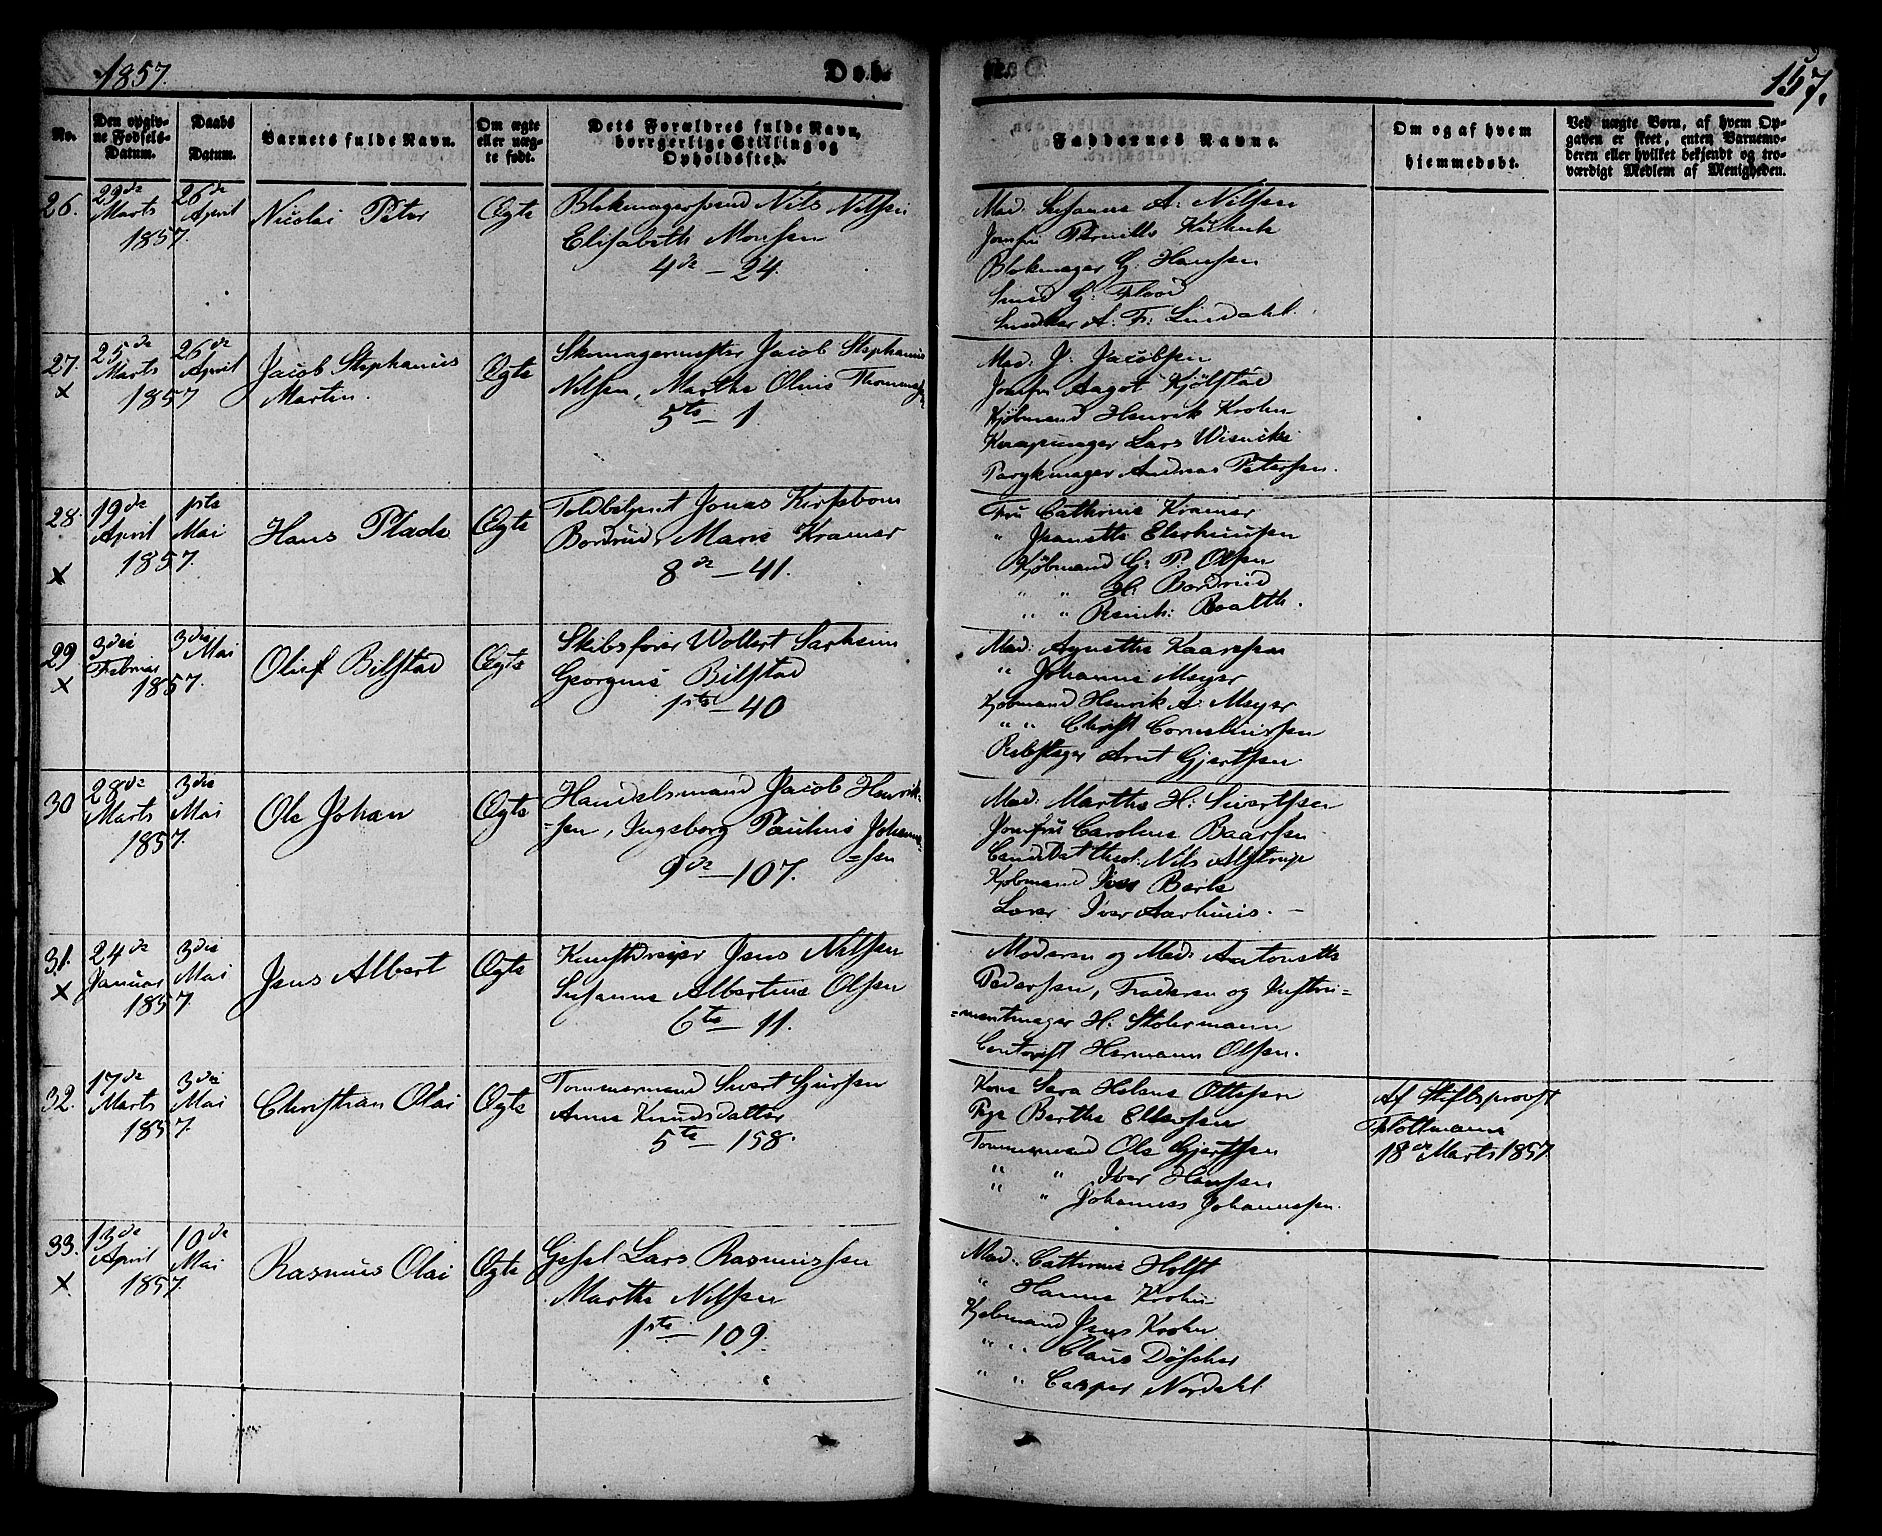 1857.
Døb.
157.
No.
Den opgiv-
ne Fødsels-
Datum.
Daabs
Datum.
Barnets fulde Navn.
Om ægte
eller uæg-
te født.
Dets Forældres fulde Navn,
borgerlige Stilling og
Opholdssted.
Faddernes Navne.
Om og af hvem
hjemmedøbt.
Ved uægte Børn, af hvem Op-
gaven er skeet, enten Barnemo-
deren eller hvilket bekjendt og tro-
værdigt Medlem af Menigheden.
26.
29de
Marts
1857.
26de
April
Nicolai Peter
Ægte
Blokmagersvend Nils Nilsen
Elisabeth Monsen
4de – 24.
Mad. Susanne A. Nilsen
Jomfru Pernille
Blokmager G. Hansen
Smed G. Flood
Snedker A. F. Lindahl.
27.
x
25de
Marts
1857
26de
April
Jacob Stephanus
Martin.
Ægte
Skomagermester Jacob Stephanus
Nilsen, Marthe Oline
5te – 1.
Mad. J. Jacobsen
Jomfru Aagot Kjølstad
Kjøbmand Henrik Krohn
Knapmager Lars
Parykmager Andreas Petersen.
28.
x
19de
April
1857.
1ste
Mai
Hans Plade
Ægte
Toldbetjent Jonas Kirsebom
Bordrud, Marie Kramer
8de – 41.
Fru Cathrine Kramer
" Jeanette Elerhuusen
Kjøbmand G. P. Olsen
" " H. Bordrud
" " Reinh:
29
x
3die
Februar
1857.
3die
Mai
Oluf Bilstad
Ægte
Skibsfører Wollert
Georgine Bilstad
1ste – 40
Mad. Agnethe Kaarsen
" Johanne Meyer
Kjøbmand Henrik A. Meyer
" " Christ Corneliussen
Rebslager Arnt Gjertsen
30
28de
Marts
1857.
3die
Mai
Ole Johan
Ægte
Handelsmand Jacob Henrik-
=sen, Ingeborg Pauline Johanne-
=sen
9de – 107.
Mad. Marthe H. Sivertsen
Jomfru Caroline Baarsen
Candidat theol. Nils Alstrup
Kjøbmand Iver Berle
Lærer Iver Aarhuus. –
31.
x
24de
Januar
1857
3die
Mai
Jens Albert
Ægte
Kunstdreier Jens Nilsen
Susanne Albertine Olsen
6te – 11.
Moderen og Mad. Antonette
Pedersen, Faderen og Instru=
=mentmager H. Stohrmann
Contorist Hermann Olsen.
32.
17de
Marts
1857.
3die
Mai
Christian Olai
Ægte
Tømmermand Sivert Sjursen
Anne Knudsdatter
5te – 158.
Kone Sara Helene Ottesen
Pige Berthe Ellersen
Tømmermand Ole Gjertsen
" " Iver Hansen
" " Johannes Johannessen.
Af Stiftsprovst
Flottmann
18de Marts 1857.
33.
x
13de
April
1857.
10de
Mai
Rasmus Olai
Ægte
Gesel Lars Rasmussen
Marthe Nilsen
1ste – 109.
Mad. Cathrine Holst
" Hanne Krohn
Kjøbmand Jens Krohn
" " Claus Døscher
" " Casper Nordahl.